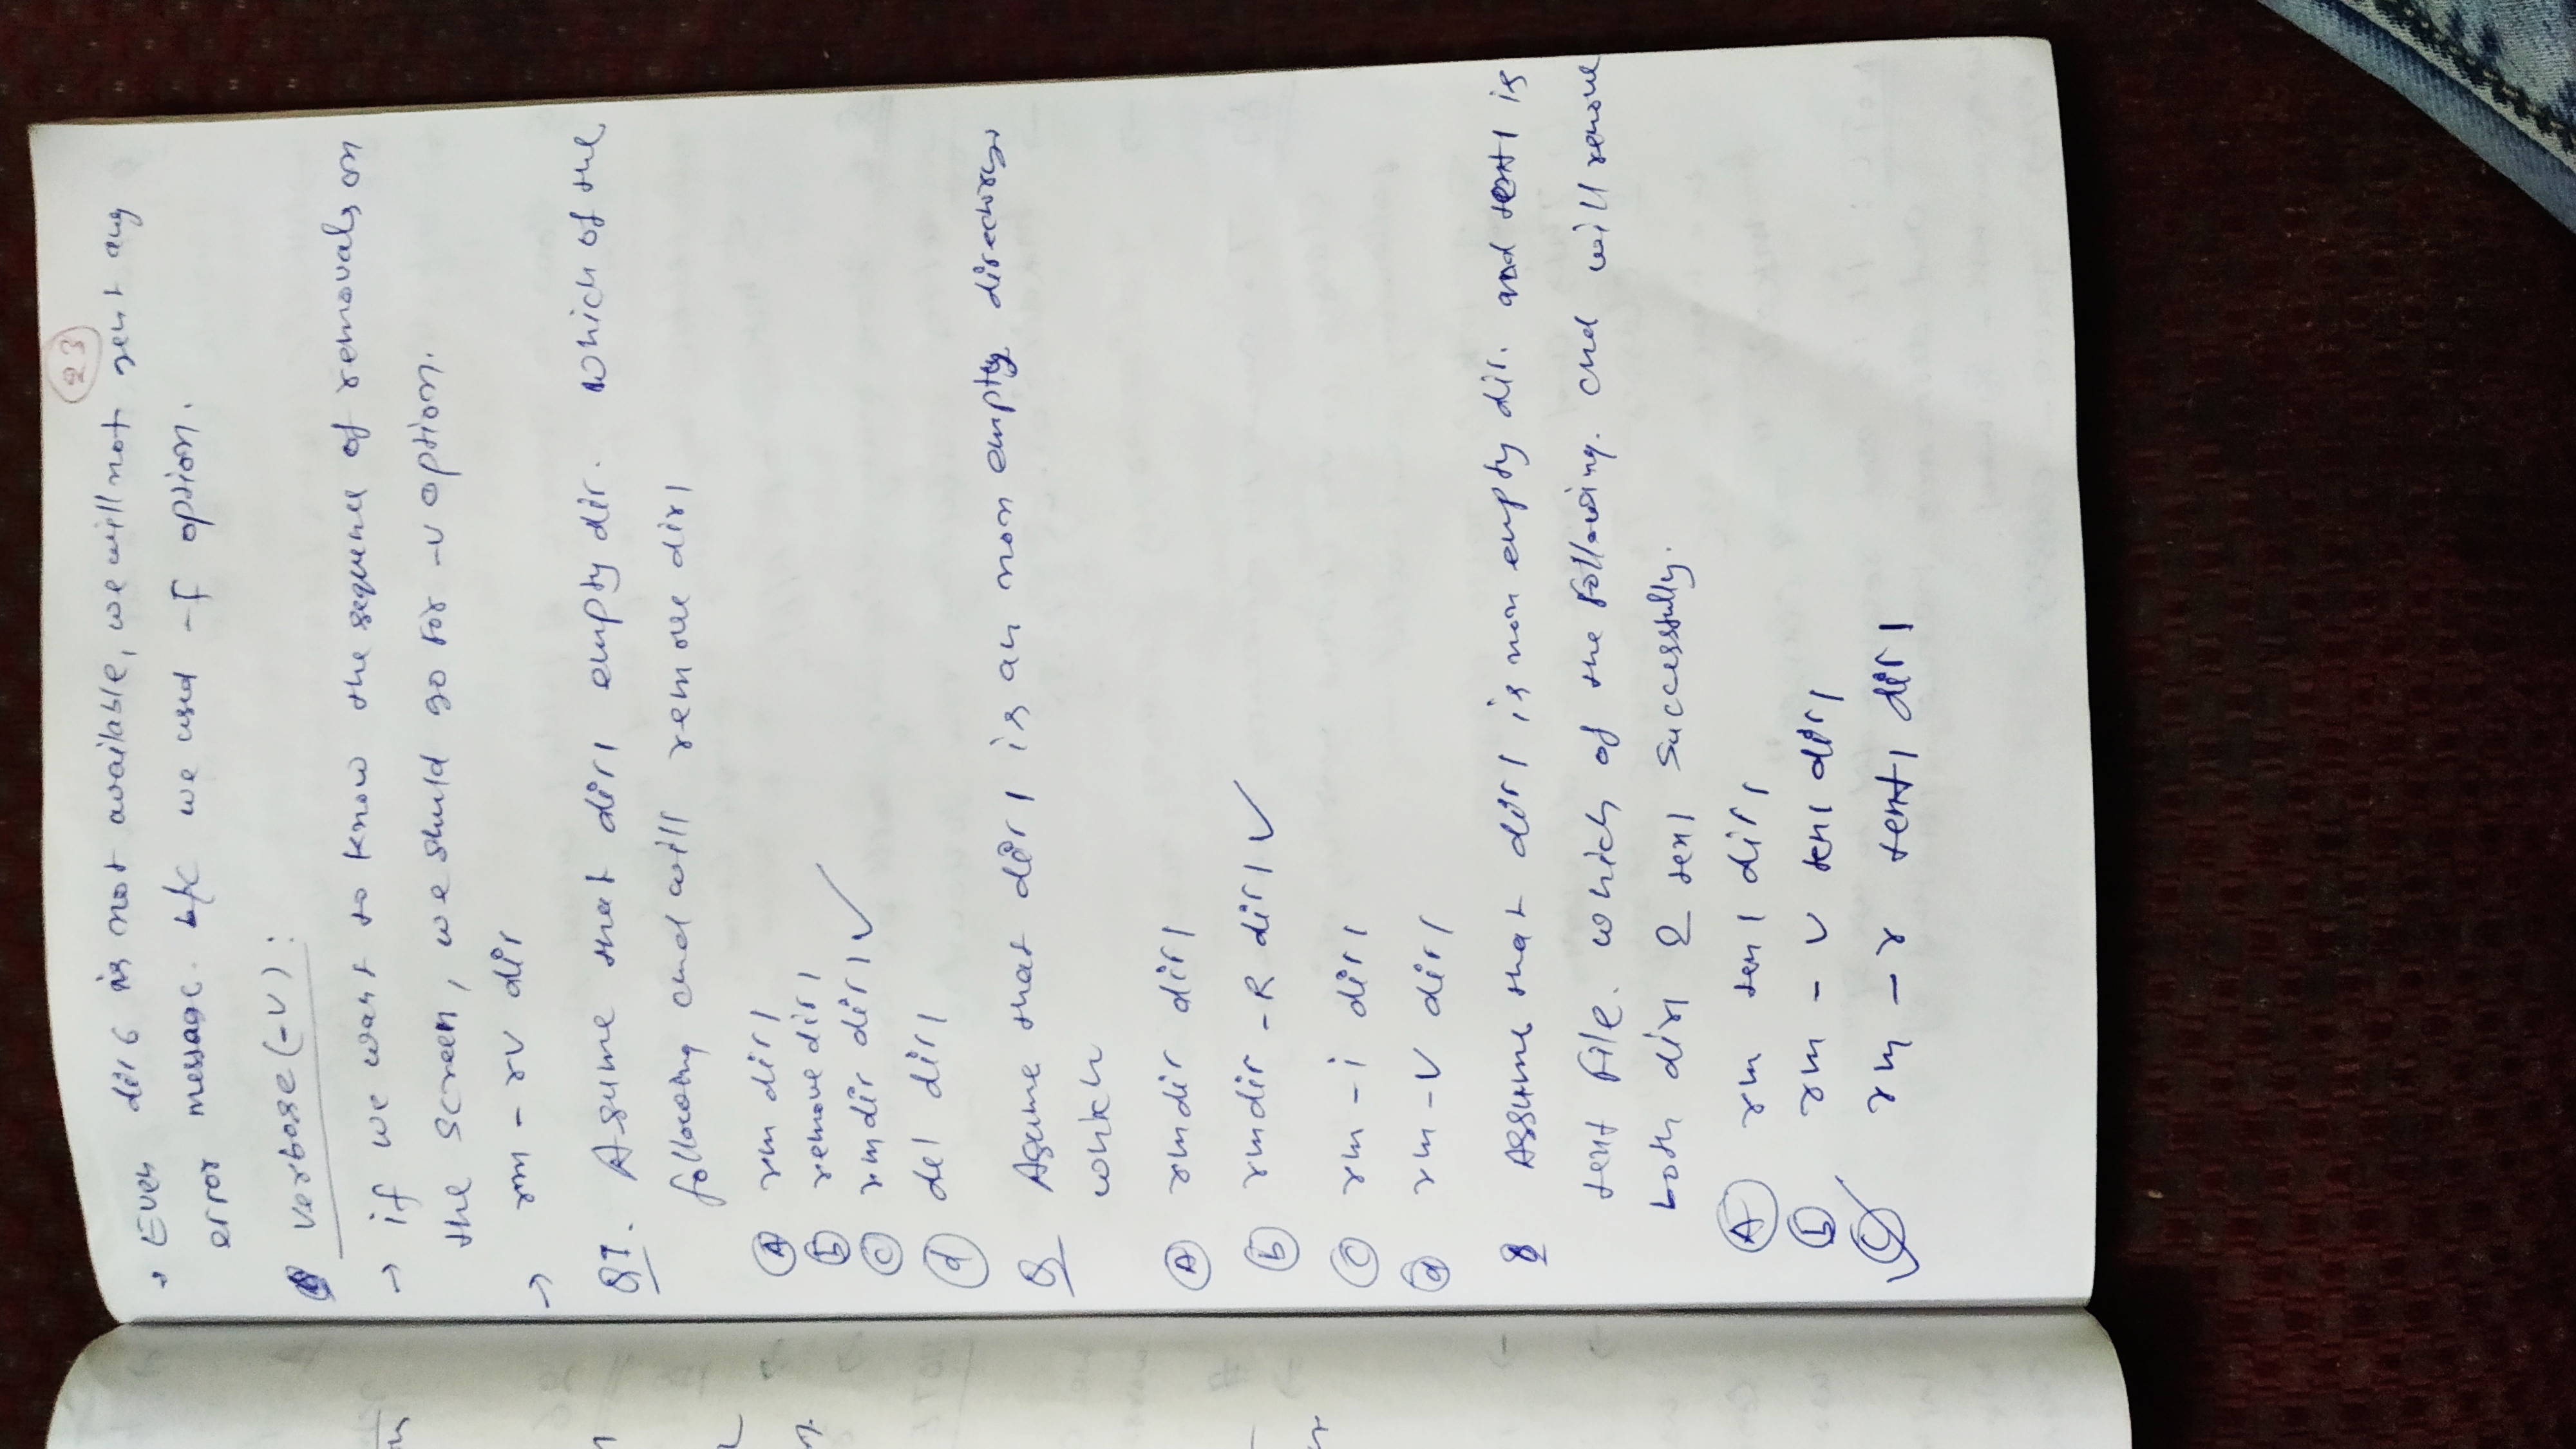 23
• Even dir6 is not available, we will not get any
error message. b/c we used -f option.
verbose (-v) :
→ if we want to know the sequence of removals on
the screen, we shuld go for -v option.
→ rm - rv dir
Q1. Asume that dir1 empty dir. which of the
following cmd will remove dir1
A rm dir1
b remove dir1
c rmdir dir1 ✓
d del dir1
Q Asume that dir1 is an non empty directory.
which
A rmdir dir1
b rmdir -R dir1 ✓
c rm -i dir1
d rm -v dir1
Q Assume that dir1 is non empty dir. and text1 is
text file. which of the following. cmd will remove
both dir1 & tex1 successfully.
A rm tex1 dir1
b rm - v tex1 dir1
✓ c rm - r text1 dir1